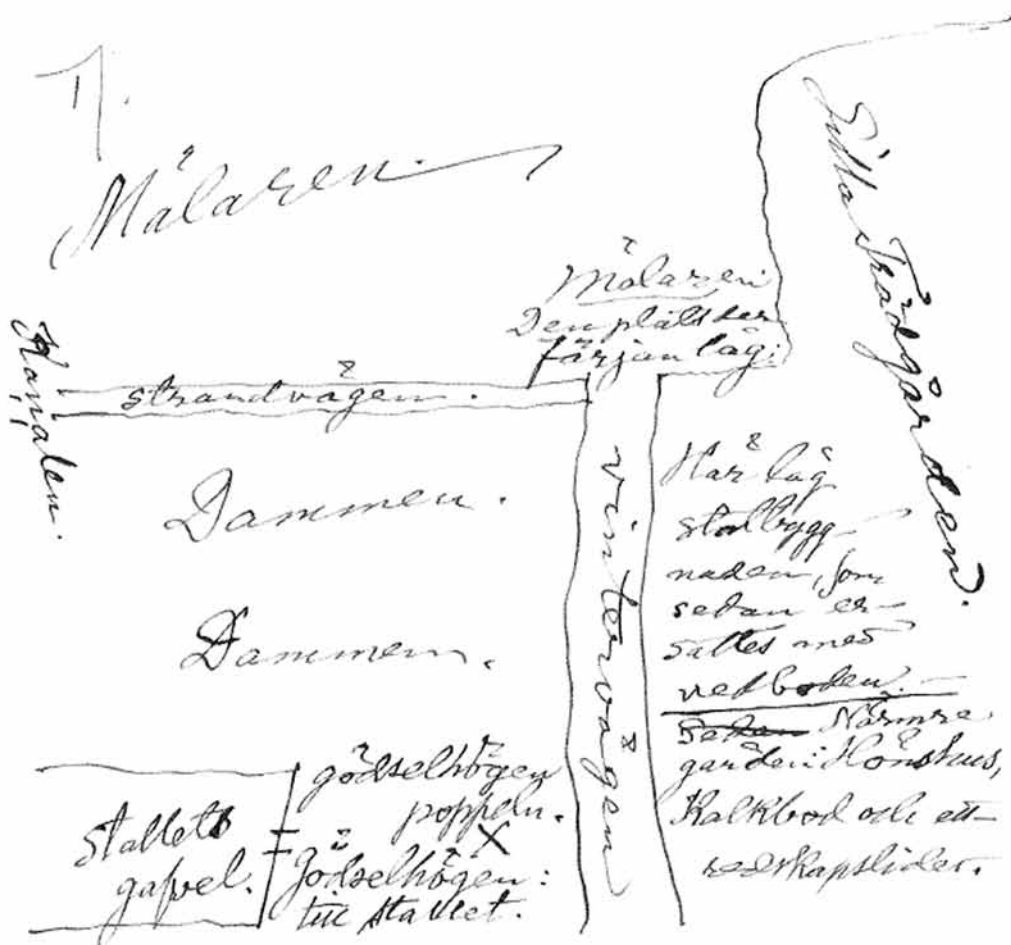 1/.
Mälaren.
Lilla Trädgården.
Mälaren
Den plats der
färjan låg:
Kanalen.
strandvägen.
Dammen.
Dammen.
vintervägen
Här låg
stallbygg-
naden, som
sedan er-
sattes med
vedboden.-
Sedan Närmre
gården: Hönshus,
Kalkbod och ett
redskapslider.
gödselhögen
poppeln.
X
Stallets
gafvel.
Gödselhögen:
till stallet.